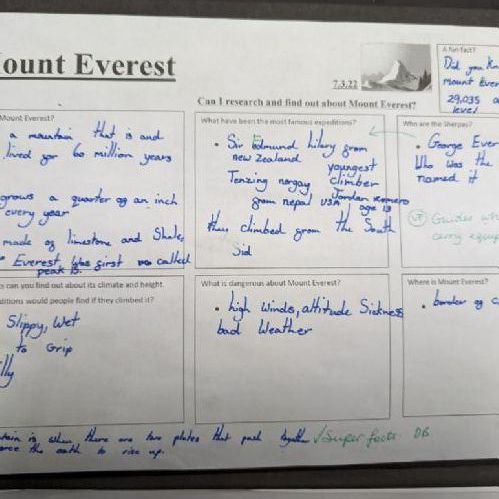 ount Everest
7.3.22
Can I research and find out about Mount Everest?
A fun fact?
Did you Kn
Mount Ever
29,035
level
Mount Everest?
a mountain that is and
lived for 60 million years
grows a quarter of an inch
every year
made of limestone and Shale,
Everest was first called
peak 15.
What have been the most famous expeditions?
• Sir Edmund hilary from
new Zealand
youngest
climber
Jordan romero
USA age 13
Tenzing norgay
from nepal
they climbed from the South
Sid
Who are the Sherpas?
• George Ever
Who was the
named it
Guides wh
carry equip
s can you find out about its climate and height.
ditions would people find if they climbed it?
Slippy, Wet
to Grip
lly
What is dangerous about Mount Everest?
• high Winds, altitude Sickness
bad Weather
Where is Mount Everest?
• border of C
tain is when there are two plates that push together ✓ Super facts DG
orce the earth to rise up.